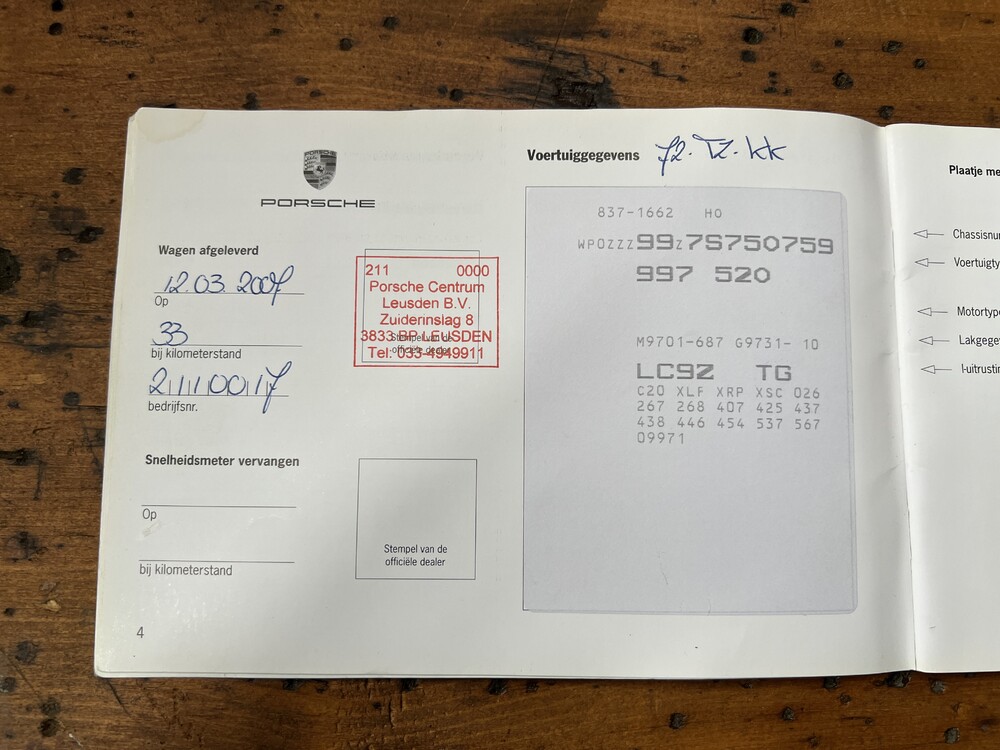 PORSCHE
PORSCHE
Wagen afgeleverd
12.03.2007
Op
33
bij kilometerstand
2111100117
bedrijfsnr.
211 0000
Porsche Centrum
Leusden B.V.
Zuiderinslag 8
3833 BP LEUSDEN
Tel: 033-4949911
Stempel van de
officiële dealer
Snelheidsmeter vervangen
Op
bij kilometerstand
Stempel van de
officiële dealer
4
Voertuiggegevens 72-TZ-KK
837-1662 HO
WPOZZZ99Z7S750759
997 520
M9701-687 G9731- 10
LC9Z TG
C20 XLF XRP XSC 026
267 268 407 425 437
438 446 454 537 567
09971
Plaatje me
Chassisnu
Voertuigty
Motortype
Lakgege
I-uitrustin